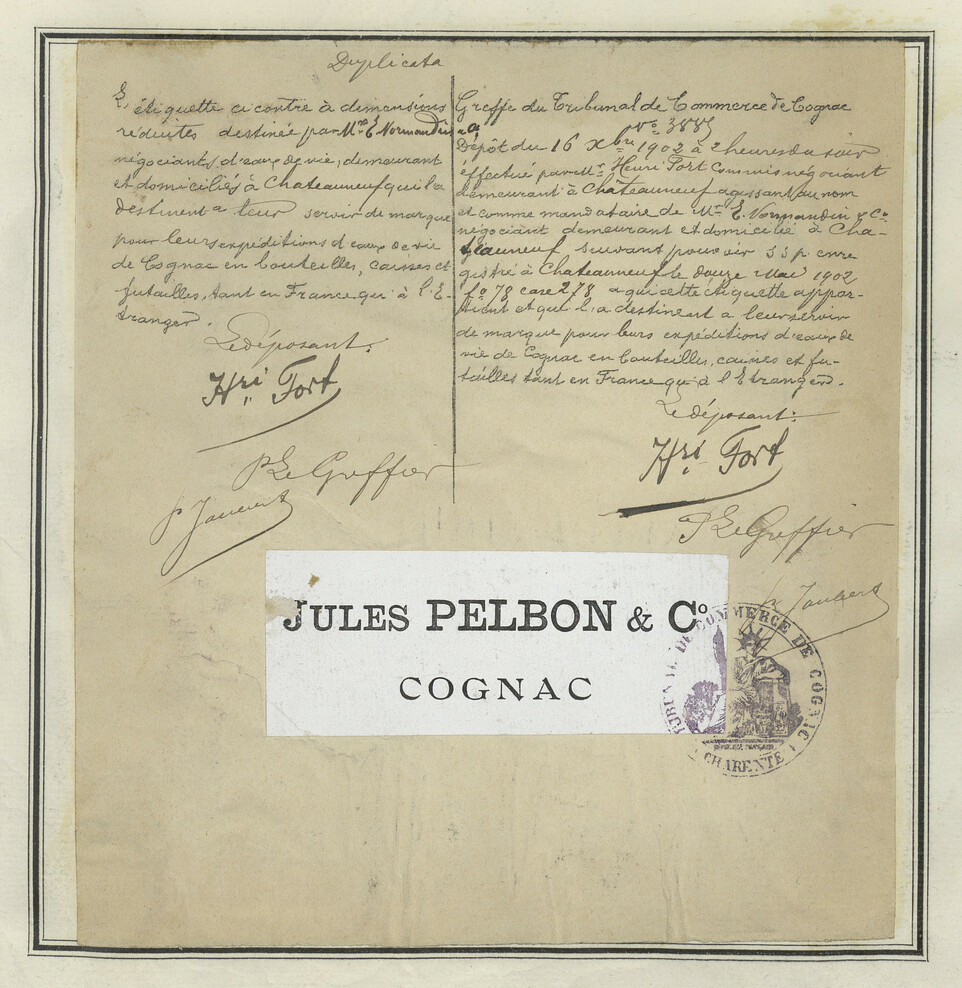 Duplicata
L'étiquette ci contre à dimensions
réduites destinée par Mrs E. Normandin & Co
négociants d'eaux de vie, demeurant
et domiciliés à Chateauneuf qui la
destinent a leur servir de marque
pour leurs expéditions d'eaux de vie
de Cognac en bouteilles, caisses et
futailles, tant en France qu'à l'E-
tranger.
Le déposant.
Hri Fort
P Le Greffier
Greffe du Tribunal de Commerce de Cognac
No 3885
Dépôt du 16 Xbre 1902 à 2 heures du soir
effectué par Mr. Henri Fort Commis négociant
demeurant à Châteauneuf agissant au nom
et comme mandataire de Mrs E. Normandin & Co
négociant demeurant et domicilié à Cha-
teauneuf suivant pouvoir s s p enre
gistré à Chateauneuf le douze Mai 1902
fo 78 case 278 a qui cette étiquette appar-
tient et qui la destinent a leur servir
de marque pour leurs expéditions d'eaux de
vie de Cognac en bouteilles, caisses et fu-
tailles tant en France qu'à l'Etranger.
Le déposant:
Hri Fort
P Le Greffier
JULES PELBON & Co.
COGNAC
TRIBUNAL DE COMMERCE DE COGNAC
CHARENTE